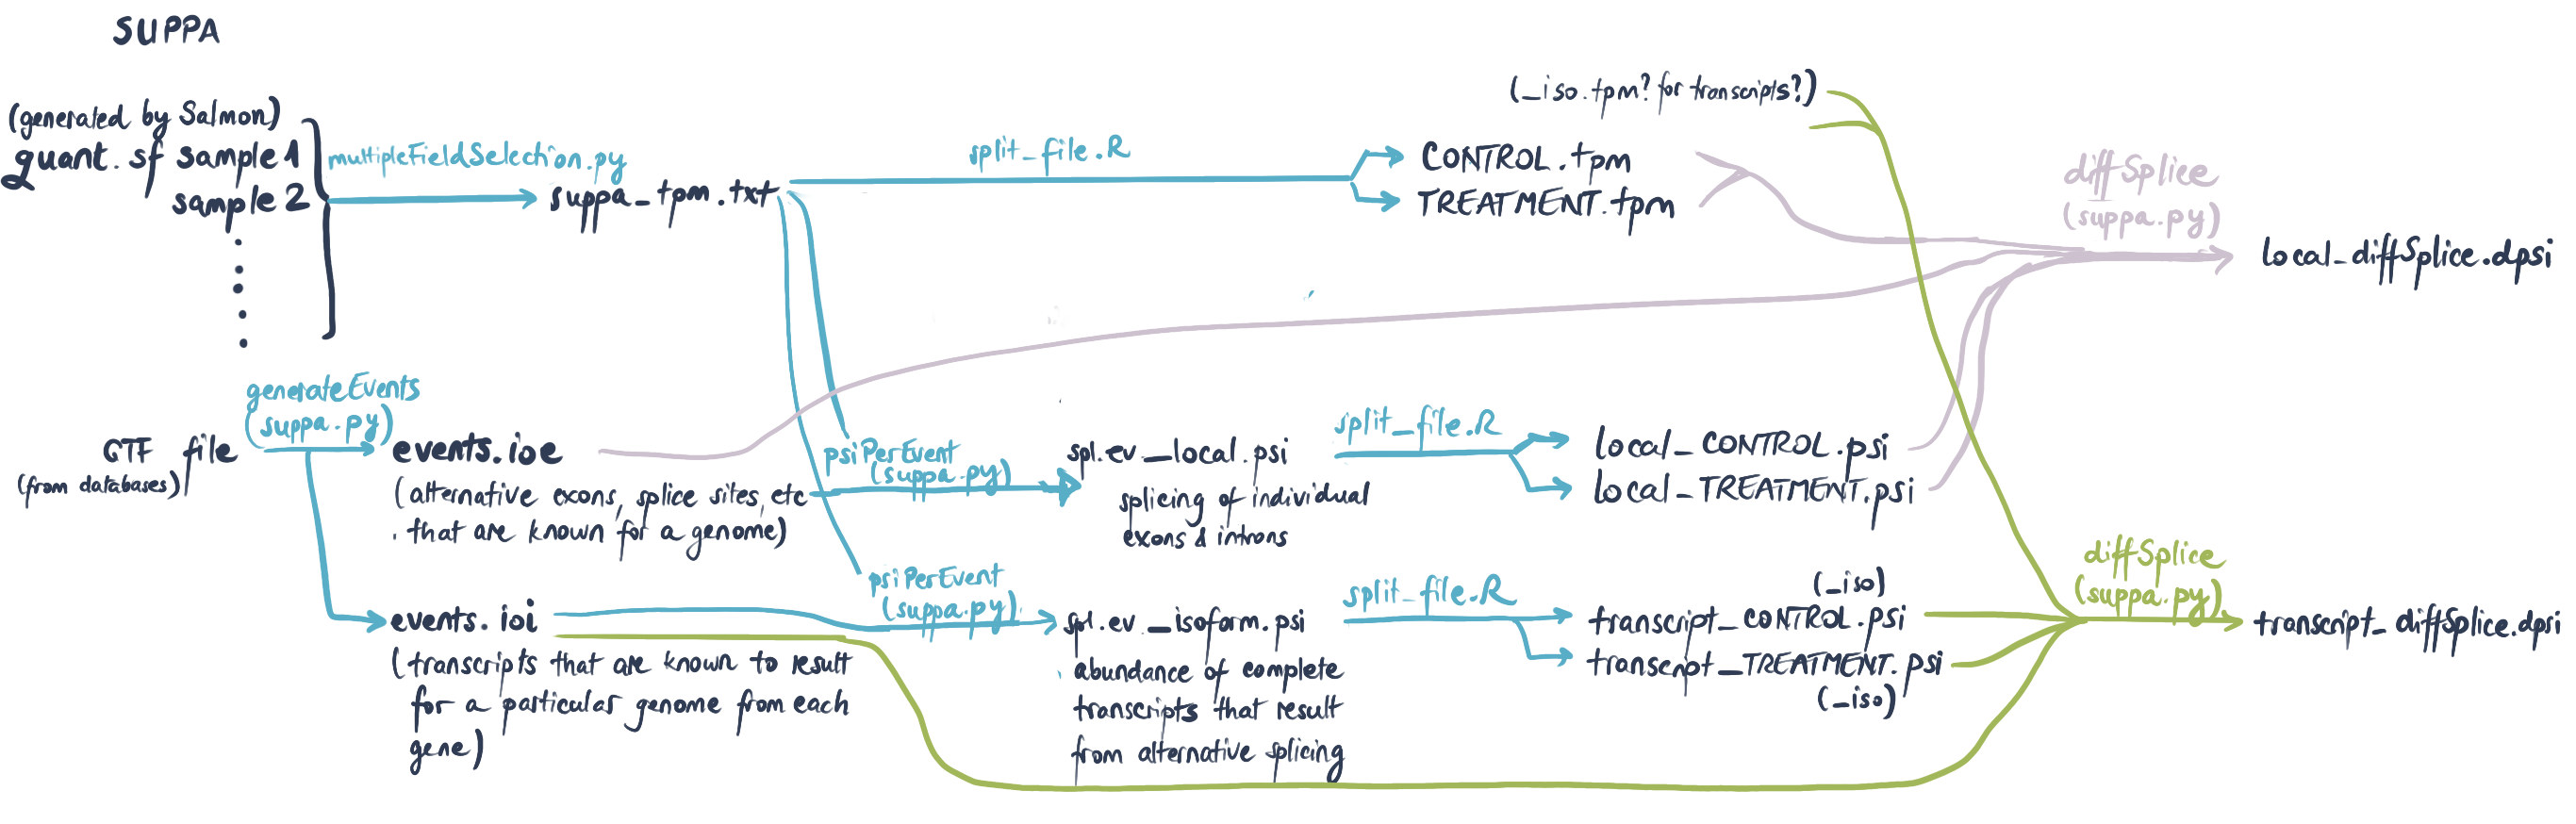 SUPPA
(generated by Salmon)
quant.sf sample 1
sample 2
multipleFieldSelection.py
suppa_tpm.txt
split_file.R
CONTROL.tpm
TREATMENT.tpm
(_iso.tpm? for transcripts?)
diffSplice
(suppa.py)
local_diffSplice.dpsi
generateEvents
(suppa.py)
GTF file
(from databases)
events.ioe
(alternative exons, splice sites, etc
that are known for a genome)
psiPerEvent
(suppa.py)
spl.ev_local.psi
splicing of individual
exons & introns
split_file.R
local_CONTROL.psi
local_TREATMENT.psi
events.ioi
(transcripts that are known to result
for a particular genome from each
gene)
psiPerEvent
(suppa.py)
spl.ev_isoform.psi
abundance of complete
transcripts that result
from alternative splicing
split_file.R
(_iso)
transcript_CONTROL.psi
transcript_TREATMENT.psi
(_iso)
diffSplice
(suppa.py)
transcript_diffSplice.dpsi